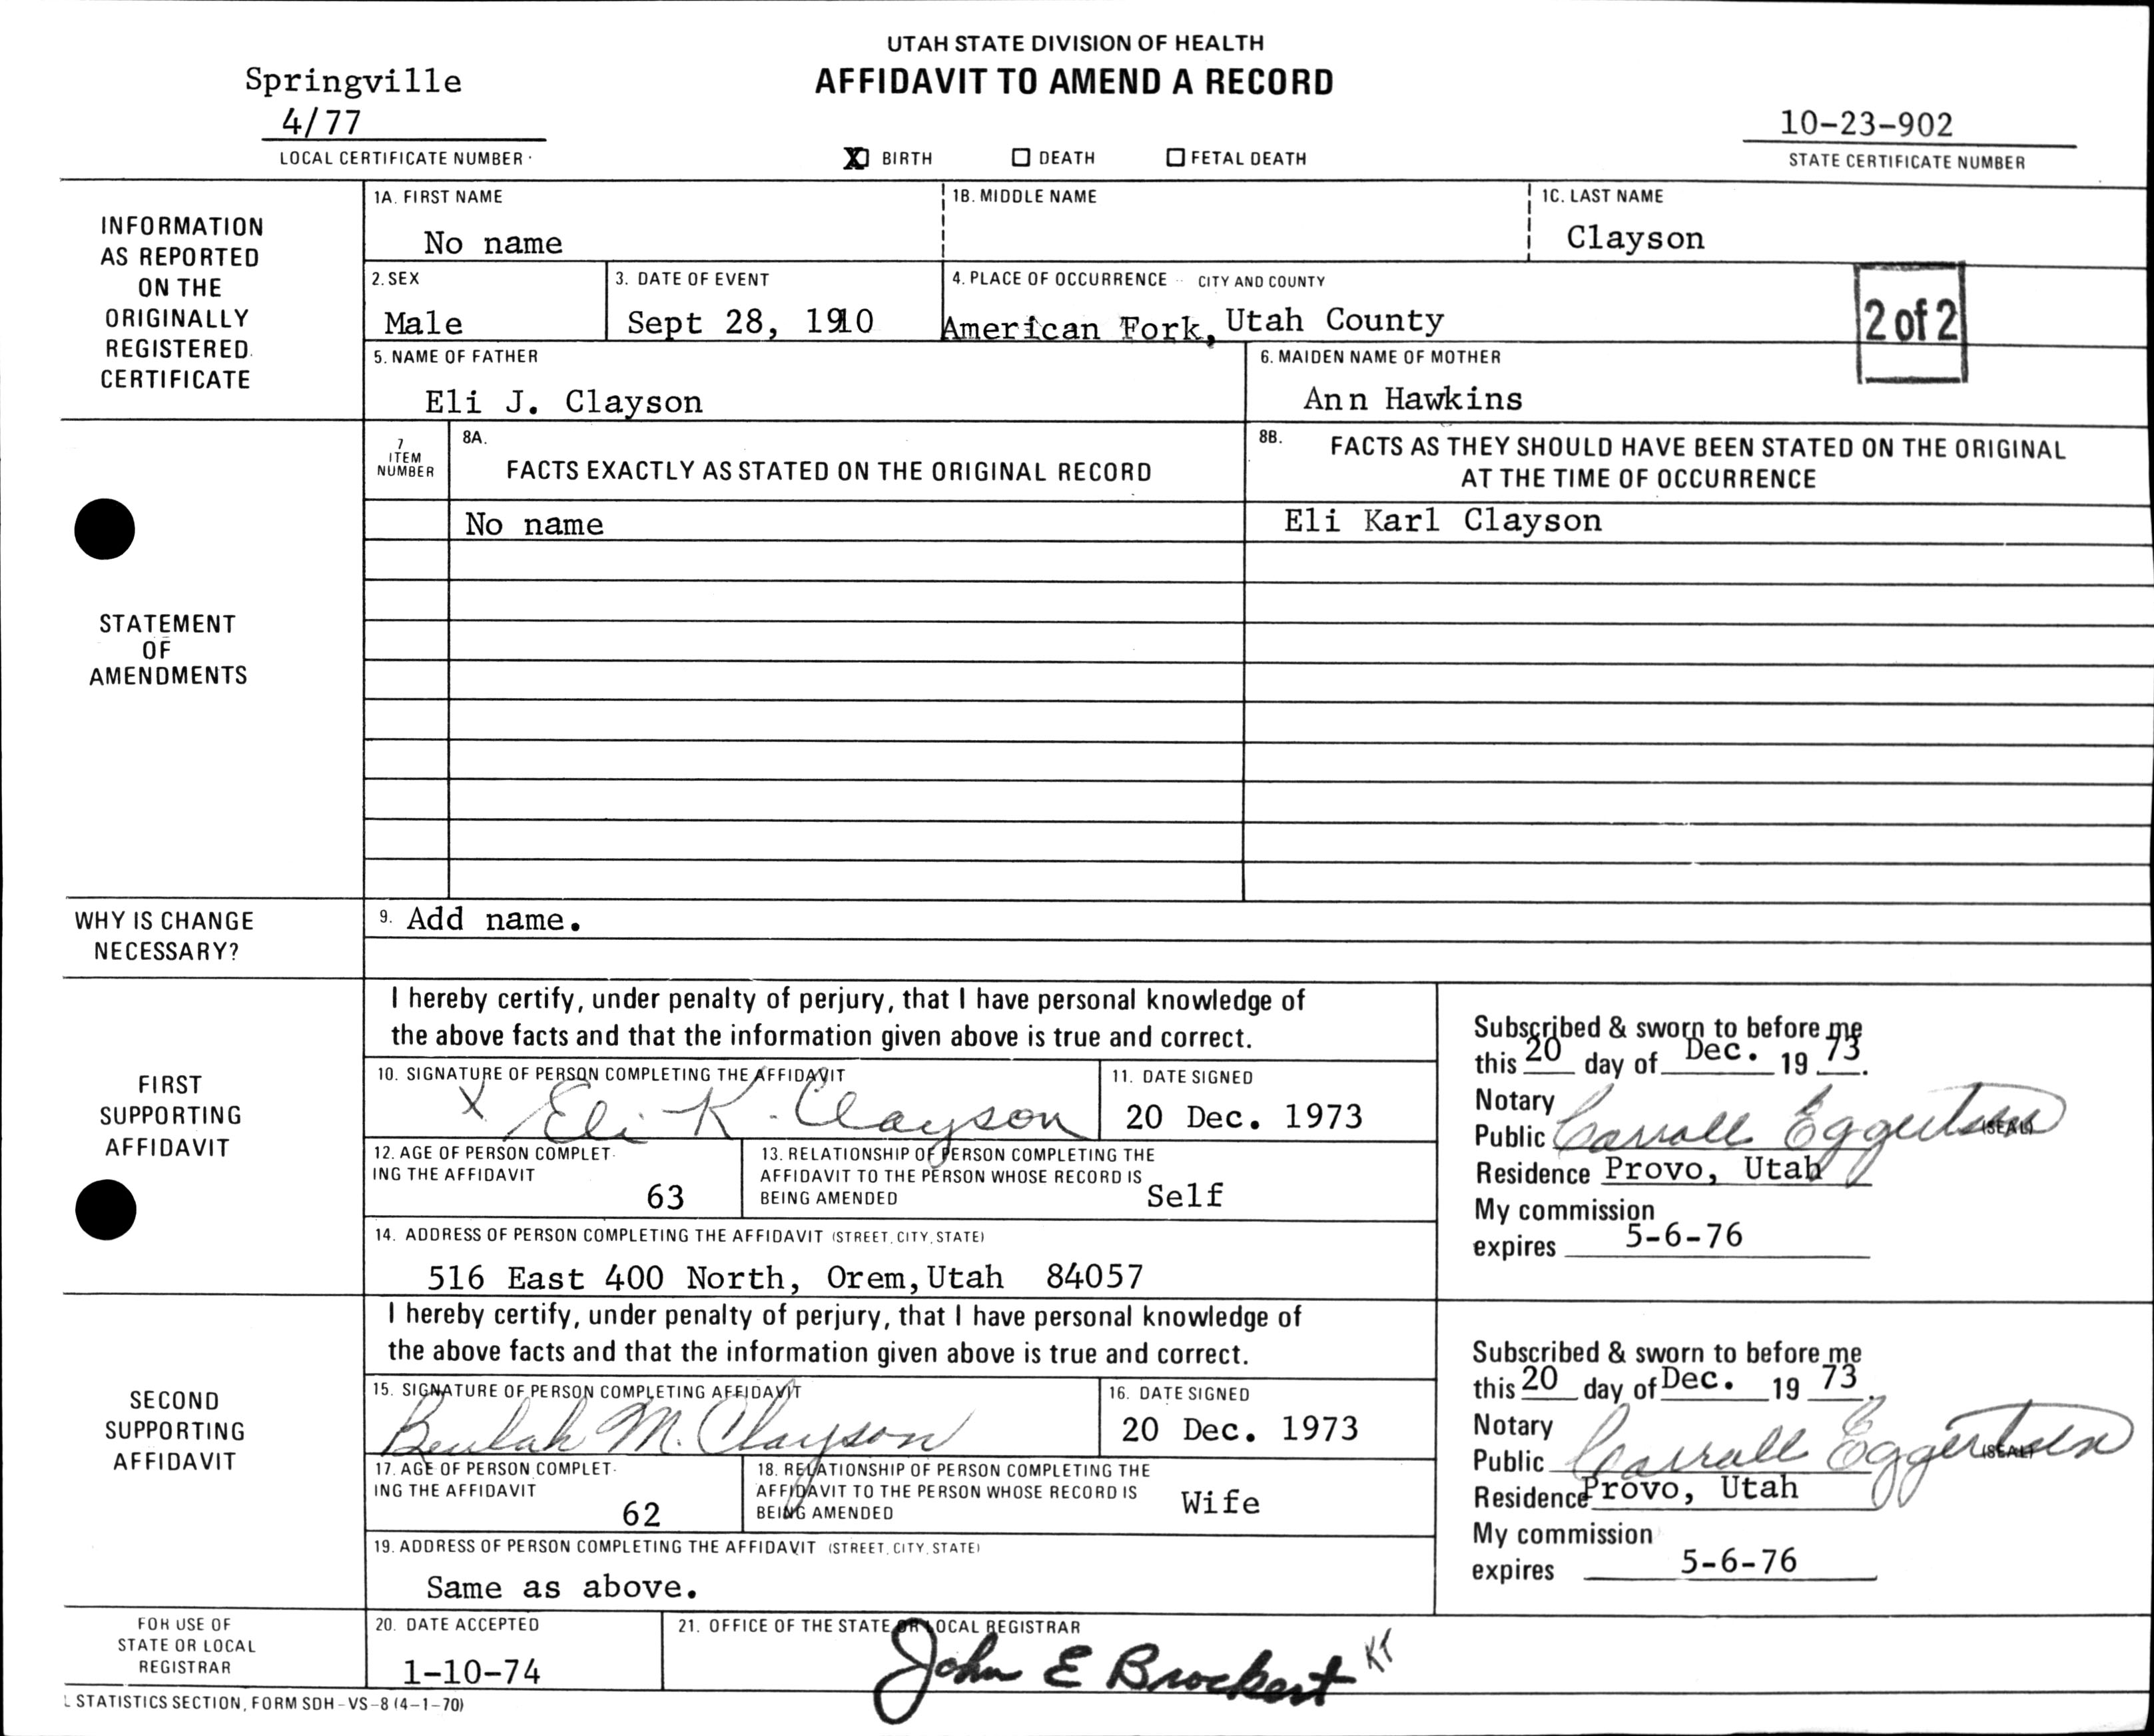 UTAH STATE DIVISION OF HEALTH
AFFIDAVIT TO AMEND A RECORD
Springville
4/77
LOCAL CERTIFICATE NUMBER
X BIRTH DEATH FETAL DEATH
10-23-902
STATE CERTIFICATE NUMBER
INFORMATION
AS REPORTED
ON THE
ORIGINALLY
REGISTERED
CERTIFICATE
1A. FIRST NAME 1B. MIDDLE NAME 1C. LAST NAME
No name Clayson
2. SEX 3. DATE OF EVENT 4. PLACE OF OCCURRENCE -- CITY AND COUNTY
Male Sept 28, 1910 American Fork, Utah County
2 of 2
5. NAME OF FATHER 6. MAIDEN NAME OF MOTHER
Eli J. Clayson Ann Hawkins
STATEMENT
OF
AMENDMENTS
7
ITEM
NUMBER
8A.
FACTS EXACTLY AS STATED ON THE ORIGINAL RECORD
8B. FACTS AS THEY SHOULD HAVE BEEN STATED ON THE ORIGINAL
AT THE TIME OF OCCURRENCE
No name Eli Karl Clayson
WHY IS CHANGE
NECESSARY?
9. Add name.
FIRST
SUPPORTING
AFFIDAVIT
I hereby certify, under penalty of perjury, that I have personal knowledge of
the above facts and that the information given above is true and correct.
10. SIGNATURE OF PERSON COMPLETING THE AFFIDAVIT 11. DATE SIGNED
X Eli K. Clayson 20 Dec. 1973
12. AGE OF PERSON COMPLET-
ING THE AFFIDAVIT
63
13. RELATIONSHIP OF PERSON COMPLETING THE
AFFIDAVIT TO THE PERSON WHOSE RECORD IS
BEING AMENDED Self
14. ADDRESS OF PERSON COMPLETING THE AFFIDAVIT (STREET, CITY, STATE)
516 East 400 North, Orem, Utah 84057
Subscribed & sworn to before me
this 20 day of Dec. 19 73.
Notary
Public Carroll Eggertsen (SEAL)
Residence Provo, Utah
My commission
expires 5-6-76
SECOND
SUPPORTING
AFFIDAVIT
I hereby certify, under penalty of perjury, that I have personal knowledge of
the above facts and that the information given above is true and correct.
15. SIGNATURE OF PERSON COMPLETING AFFIDAVIT 16. DATE SIGNED
Beulah M. Clayson 20 Dec. 1973
17. AGE OF PERSON COMPLET-
ING THE AFFIDAVIT
62
18. RELATIONSHIP OF PERSON COMPLETING THE
AFFIDAVIT TO THE PERSON WHOSE RECORD IS
BEING AMENDED Wife
19. ADDRESS OF PERSON COMPLETING THE AFFIDAVIT (STREET, CITY, STATE)
Same as above.
Subscribed & sworn to before me
this 20 day of Dec. 19 73.
Notary
Public Carroll Eggertsen (SEAL)
Residence Provo, Utah
My commission
expires 5-6-76
FOR USE OF
STATE OR LOCAL
REGISTRAR
20. DATE ACCEPTED 21. OFFICE OF THE STATE OR LOCAL REGISTRAR
1-10-74 John E Brockert KT
L STATISTICS SECTION, FORM SDH-VS-8 (4-1-70)